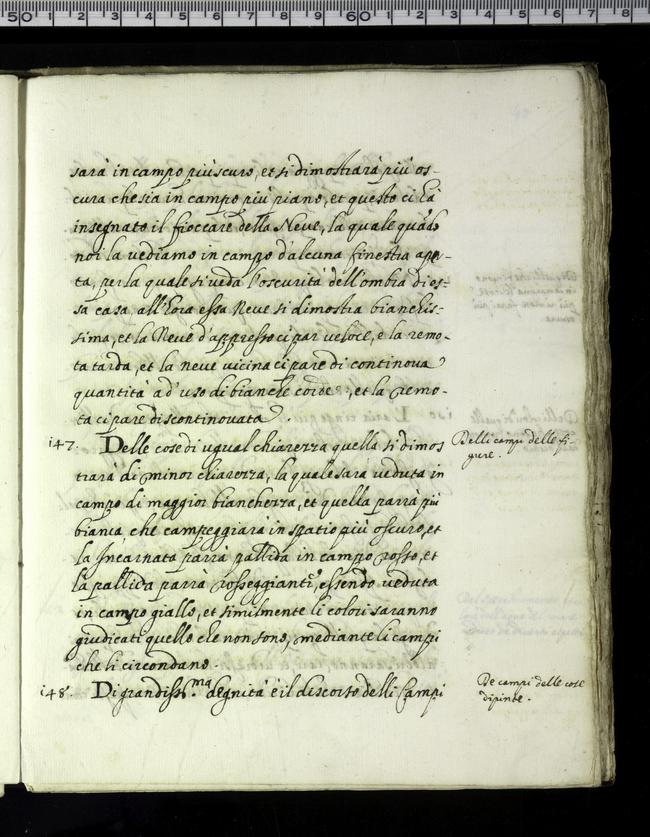 sarà in campo più scuro, et si dimostrarà più os-
cura che sia in campo più piano, et questo ci hà
insegnato il fioccare della Neve, la quale quãdo
noi la vediamo in campo d'alcuna finestra aper-
ta, per la quale si veda l'oscurità dell'ombra di es-
sa casa, all'hora essa Neve si dimostra bianchis-
sima, et la Neve d'appresso ci par veloce, e la remo-
ta tarda, et la neve vicina ci pare di continova
quantità ad'uso di bianche corde, et la remo-
ta ci pare discontinovata.
147. Delle cose di ugual chiarezza quella si dimos
trarà di minor chiarezza, la quale sara veduta in
campo di maggior bianchezza, et quella parrà più
bianca, che campeggiarà in spatio più oscuro, et
la Incarnata parrà pallida in campo rosso, et
la pallida parrà rosseggiante, essendo veduta
in campo giallo, et similmente li colori saranno
giudicati quello che non sono, mediante li campi
che li circondano.
Delli campi delle fi-
gure.
148. Di grandiss.ma degnità è il discorso delli Campi
De campi delle cose
dipinte.